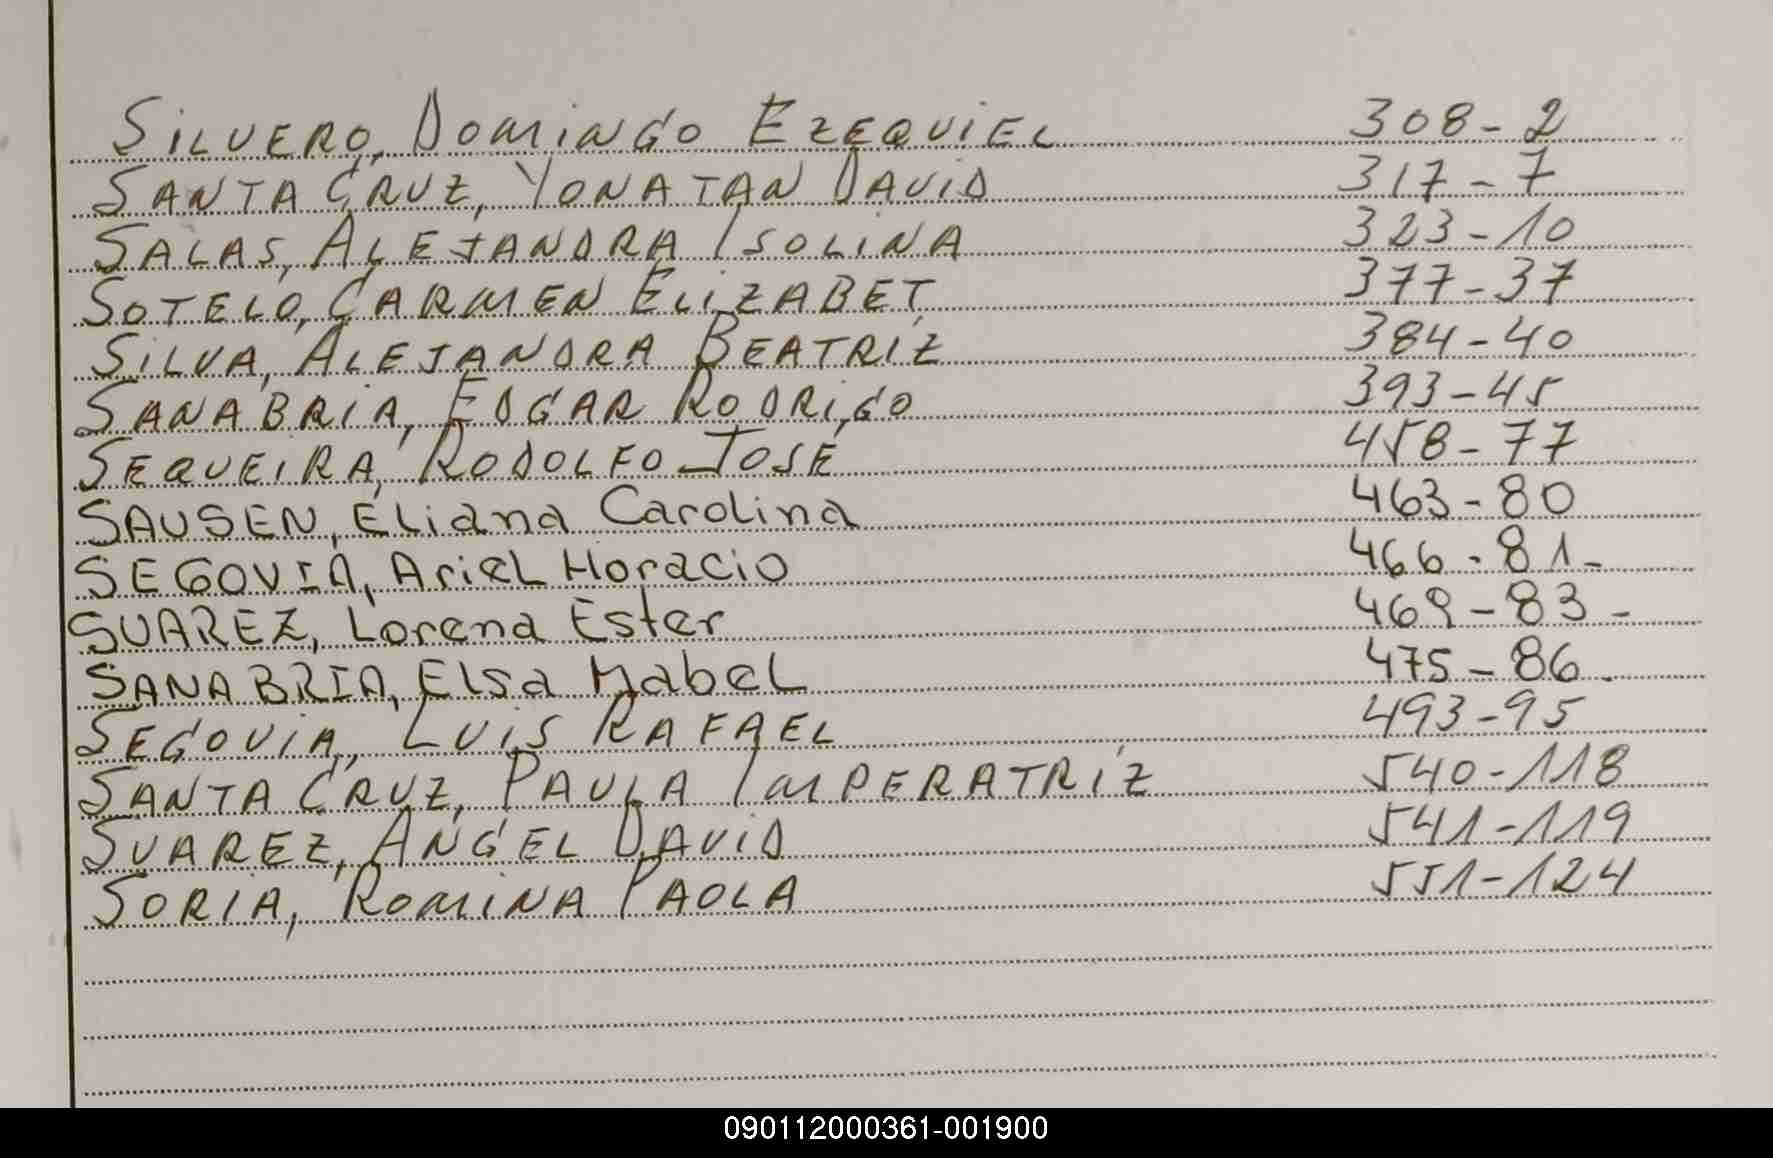 SILVERO, DOMINGO EZEQUIEL 308-2
SANTA CRUZ, YONATAN DAVID 317-7
SALAS, ALEJANDRA ISOLINA 323-10
SOTELO, CARMEN ELIZABET 377-37
SILVA, ALEJANDRA BEATRÍZ 384-40
SANABRIA, EDGAR RODRIGO 393-45
SEQUEIRA, RODOLFO JOSÉ 458-77
SAUSEN, ELiana Carolina 463-80
SEGOVIA, Ariel Horacio 466-81-
SUAREZ, Lorena Ester 469-83-
SANABRIA, Elsa Mabel 475-86.
SEGOVIA, LUIS RAFAEL 493-95
SANTA CRUZ, PAULA IMPERATRÍZ 540-118
SUAREZ, ANGEL DAVID 541-119
SORIA, ROMINA PAOLA 551-124
090112000361-001900